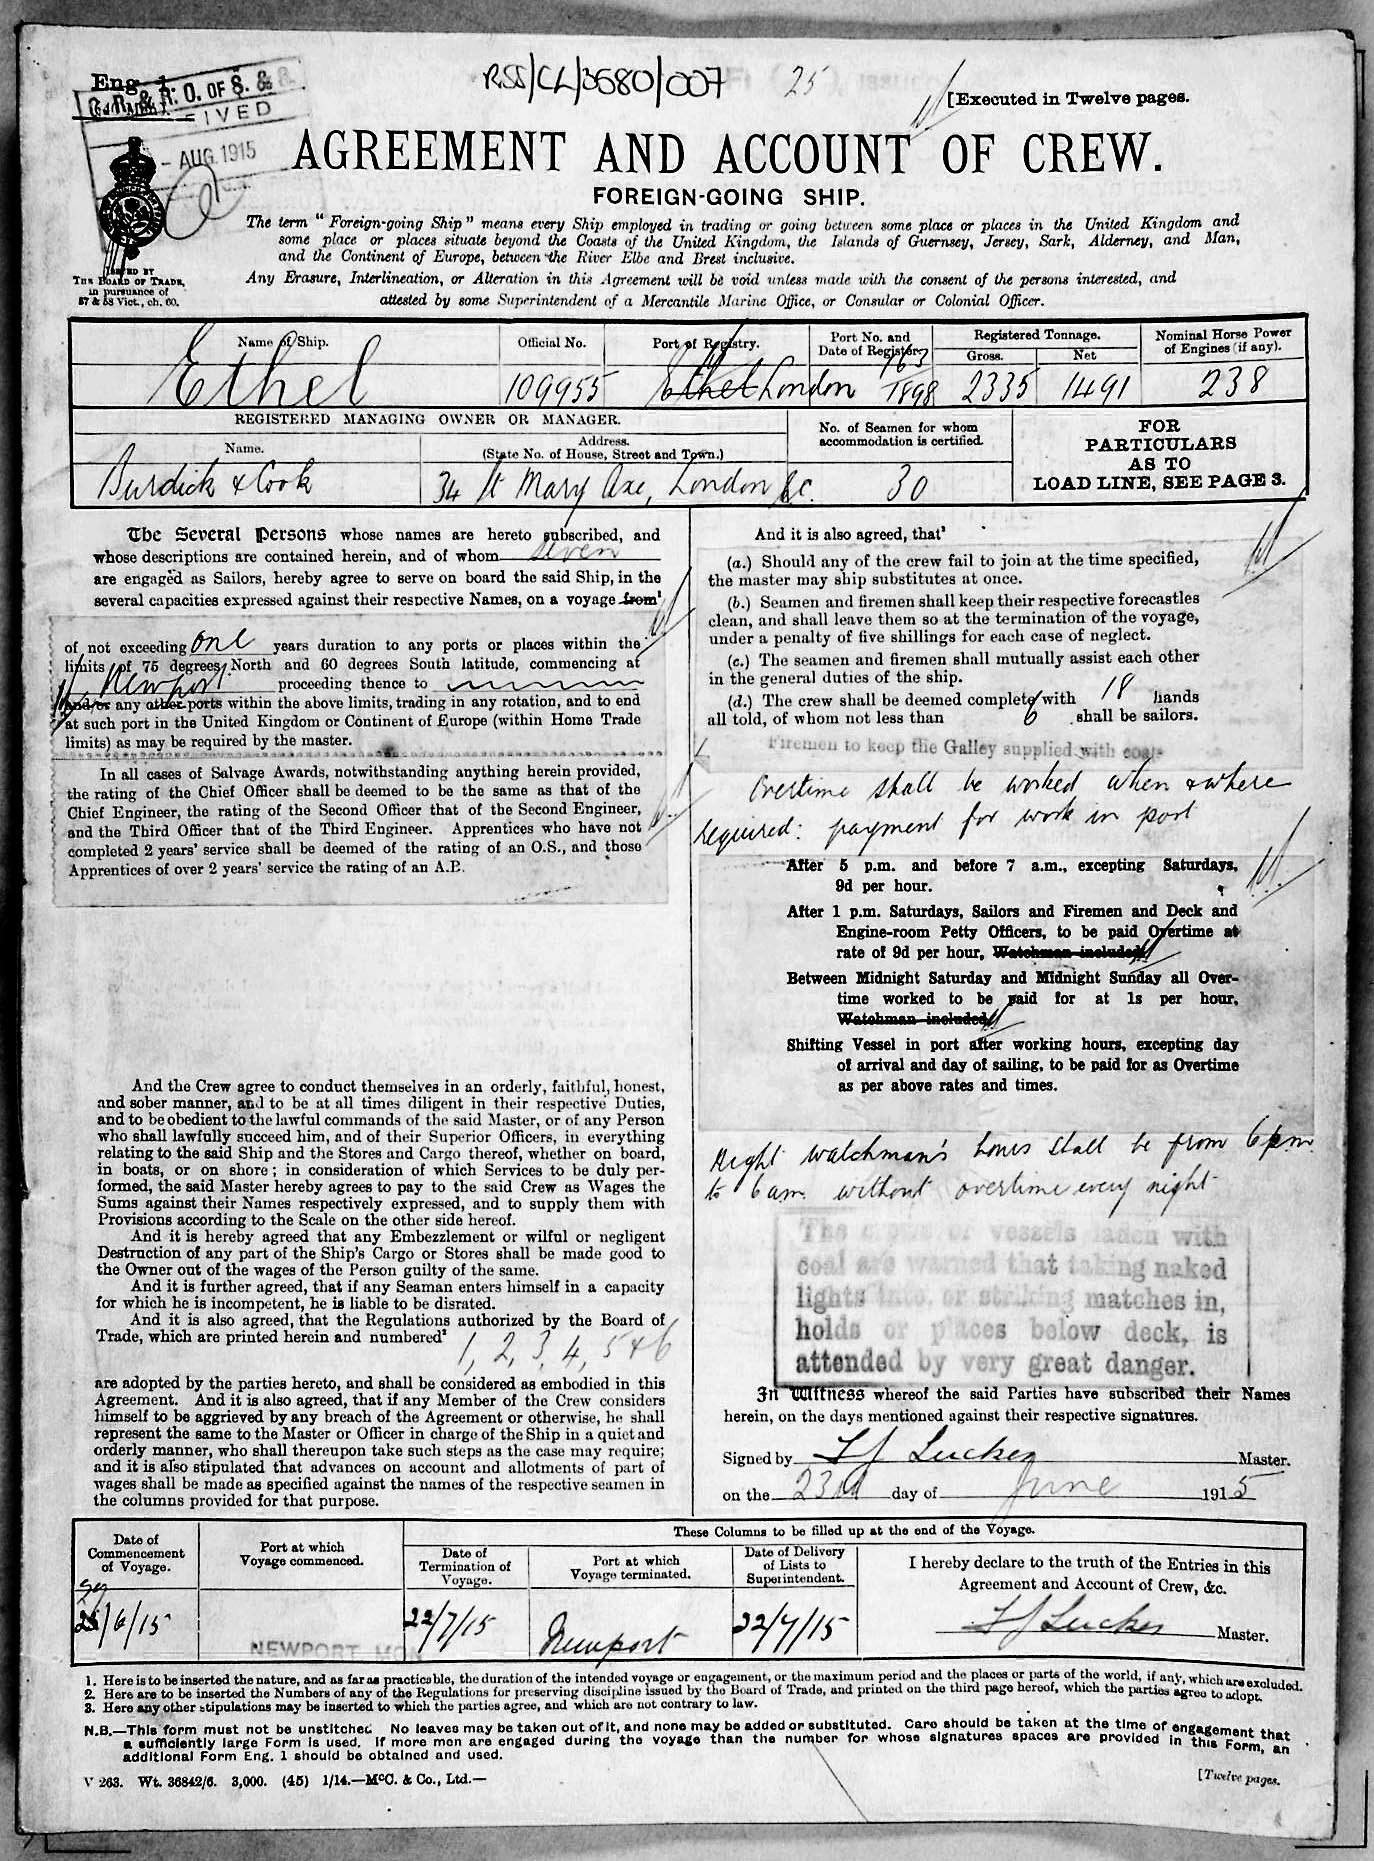 RSS/CL/3680/007 25
Eng. 1.
R. O. OF S. & S.
AUG. 1915
[Executed in Twelve pages.
AGREEMENT AND ACCOUNT OF CREW.
FOREIGN-GOING SHIP.
ISSUED BY
THE BOARD OF TRADE,
in pursuance of
57 & 58 Vict., ch. 60.
The term "Foreign-going Ship" means every Ship employed in trading or going between some place or places in the United Kingdom and
some place or places situate beyond the Coasts of the United Kingdom, the Islands of Guernsey, Jersey, Sark, Alderney, and Man,
and the Continent of Europe, between the River Elbe and Brest inclusive.
Any Erasure, Interlineation, or Alteration in this Agreement will be void unless made with the consent of the persons interested, and
attested by some Superintendent of a Mercantile Marine Office, or Consular or Colonial Officer.
Name of Ship. Official No. Port of Registry. Port No. and Date of Register. Registered Tonnage. Gross. Net Nominal Horse Power of Engines (if any).
Ethel 109955 Ethel London 163/1898 2335 1491 238
REGISTERED MANAGING OWNER OR MANAGER.
Name. Address. (State No. of House, Street and Town.) No. of Seamen for whom accommodation is certified.
Burdick & Cook 34 St Mary Axe, London E.C. 30
FOR
PARTICULARS
AS TO
LOAD LINE, SEE PAGE 3.
The Several Persons whose names are hereto subscribed, and
whose descriptions are contained herein, and of whom seven
are engaged as Sailors, hereby agree to serve on board the said Ship, in the
several capacities expressed against their respective Names, on a voyage from¹
of not exceeding one years duration to any ports or places within the
limits of 75 degrees North and 60 degrees South latitude, commencing at
Newport proceeding thence to
and/or any other ports within the above limits, trading in any rotation, and to end
at such port in the United Kingdom or Continent of Europe (within Home Trade
limits) as may be required by the master.
In all cases of Salvage Awards, notwithstanding anything herein provided,
the rating of the Chief Officer shall be deemed to be the same as that of the
Chief Engineer, the rating of the Second Officer that of the Second Engineer,
and the Third Officer that of the Third Engineer. Apprentices who have not
completed 2 years' service shall be deemed of the rating of an O.S., and those
Apprentices of over 2 years' service the rating of an A.B.
And the Crew agree to conduct themselves in an orderly, faithful, honest,
and sober manner, and to be at all times diligent in their respective Duties,
and to be obedient to the lawful commands of the said Master, or of any Person
who shall lawfully succeed him, and of their Superior Officers, in everything
relating to the said Ship and the Stores and Cargo thereof, whether on board,
in boats, or on shore; in consideration of which Services to be duly per-
formed, the said Master hereby agrees to pay to the said Crew as Wages the
Sums against their Names respectively expressed, and to supply them with
Provisions according to the Scale on the other side hereof.
And it is hereby agreed that any Embezzlement or wilful or negligent
Destruction of any part of the Ship's Cargo or Stores shall be made good to
the Owner out of the wages of the Person guilty of the same.
And it is further agreed, that if any Seaman enters himself in a capacity
for which he is incompetent, he is liable to be disrated.
And it is also agreed, that the Regulations authorized by the Board of
Trade, which are printed herein and numbered²
1, 2, 3, 4, 5 & 6
are adopted by the parties hereto, and shall be considered as embodied in this
Agreement. And it is also agreed, that if any Member of the Crew considers
himself to be aggrieved by any breach of the Agreement or otherwise, he shall
represent the same to the Master or Officer in charge of the Ship in a quiet and
orderly manner, who shall thereupon take such steps as the case may require;
and it is also stipulated that advances on account and allotments of part of
wages shall be made as specified against the names of the respective seamen in
the columns provided for that purpose.
And it is also agreed, that³
(a.) Should any of the crew fail to join at the time specified,
the master may ship substitutes at once.
(b.) Seamen and firemen shall keep their respective forecastles
clean, and shall leave them so at the termination of the voyage,
under a penalty of five shillings for each case of neglect.
(c.) The seamen and firemen shall mutually assist each other
in the general duties of the ship.
(d.) The crew shall be deemed complete with 18 hands
all told, of whom not less than 6 shall be sailors.
Firemen to keep the Galley supplied with coal
Overtime shall be worked when & where
required: payment for work in port
After 5 p.m. and before 7 a.m., excepting Saturdays,
9d per hour.
After 1 p.m. Saturdays, Sailors and Firemen and Deck and
Engine-room Petty Officers, to be paid Overtime at
rate of 9d per hour, Watchman included.
Between Midnight Saturday and Midnight Sunday all Over-
time worked to be paid for at 1s per hour,
Watchman included.
Shifting Vessel in port after working hours, excepting day
of arrival and day of sailing, to be paid for as Overtime
as per above rates and times.
Night watchman's hours shall be from 6 pm
to 6 am without overtime every night
The crews of vessels laden with
coal are warned that taking naked
lights into, or striking matches in,
holds or places below deck, is
attended by very great danger.
In Witness whereof the said Parties have subscribed their Names
herein, on the days mentioned against their respective signatures.
Signed by Master.
on the 23rd day of June 1915
Date of Commencement of Voyage. Port at which Voyage commenced. These Columns to be filled up at the end of the Voyage.
Date of Termination of Voyage. Port at which Voyage terminated. Date of Delivery of Lists to Superintendent. I hereby declare to the truth of the Entries in this Agreement and Account of Crew, &c.
/6/15 NEWPORT MON 22/7/15 Newport 22/7/15 Master.
1. Here is to be inserted the nature, and as far as practicable, the duration of the intended voyage or engagement, or the maximum period and the places or parts of the world, if any, which are excluded.
2. Here are to be inserted the Numbers of any of the Regulations for preserving discipline issued by the Board of Trade, and printed on the third page hereof, which the parties agree to adopt.
3. Here any other stipulations may be inserted to which the parties agree, and which are not contrary to law.
N.B.—This form must not be unstitched. No leaves may be taken out of it, and none may be added or substituted. Care should be taken at the time of engagement that
a sufficiently large Form is used. If more men are engaged during the voyage than the number for whose signatures spaces are provided in this Form, an
additional Form Eng. 1 should be obtained and used.
V 263. Wt. 36842/6. 3,000. (45) 1/14.—McC. & Co., Ltd.—
[Twelve pages.